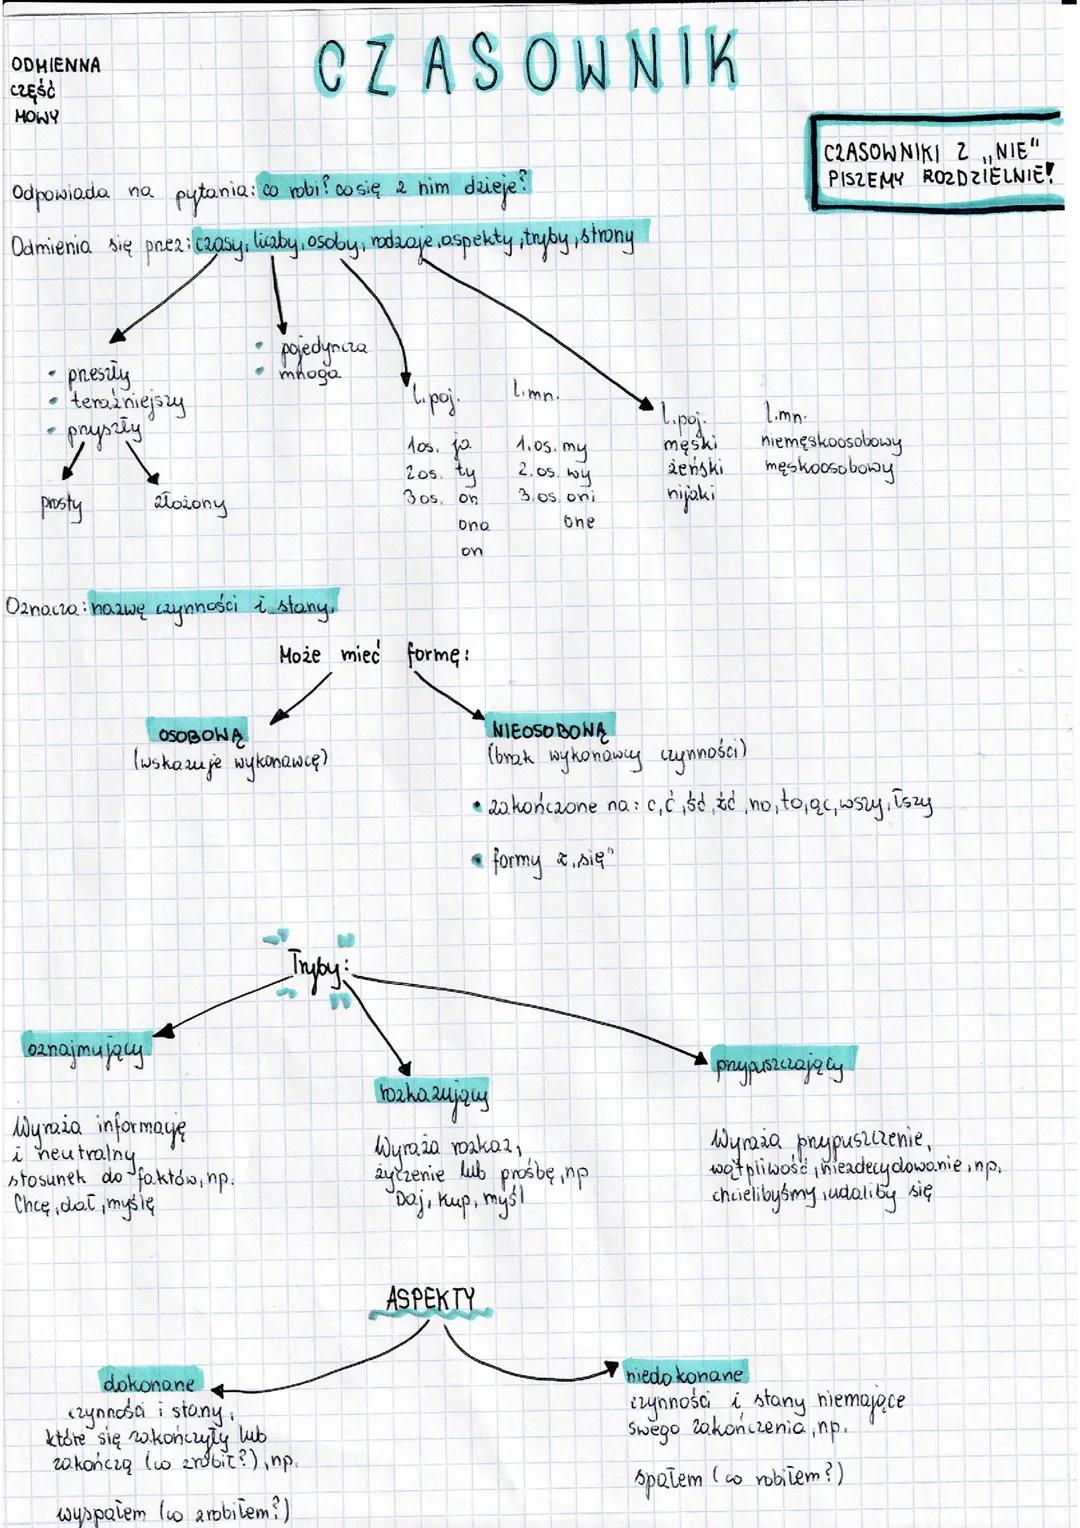 CZASOWNIK
ODMIENNA
CZĘŚĆ
MOWY
CZASOWNIKI Z „NIE"
PISZEMY ROZDZIELNIE!
Odpowiada na pytania: co robi? co się z nim dzieje?
Odmienia się przez: czasy, liczby, osoby, rodzaje, aspekty, tryby, strony
• przeszły
• teraźniejszy
• przyszły
prosty
złożony
• pojedyncza
• mnoga
l.poj.
1os. ja
2os. ty
3os. on
ona
on
l.mn.
1.os. my
2.os. wy
3.os. oni
one
l.poj.
męski
żeński
nijaki
l.mn.
niemęskoosobowy
męskoosobowy
Oznacza: nazwę czynności i stany.
Może mieć formę:
OSOBOWĄ
(wskazuje wykonawcę)
NIEOSOBOWĄ
(brak wykonawcy czynności)
• zakończone na: c, ć, ść, źć, no, to, ąc, wszy, łszy
• formy z „się"
Tryby:
oznajmujący
Wyraża informację
i neutralny
stosunek do faktów, np.
Chcę, dał, myślę
rozkazujący
Wyraża rozkaz,
życzenie lub prośbę, np
Daj, kup, myśl
przypuszczający
Wyraża przypuszczenie,
wątpliwość, niezdecydowanie, np.
chcielibyśmy, udaliby się
ASPEKTY
dokonane
czynności i stany,
które się zakończyły lub
zakończą (co zrobić?), np.
wyspałem (co zrobiłem?)
niedokonane
czynności i stany niemające
swego zakończenia, np.
spałem (co robiłem?)